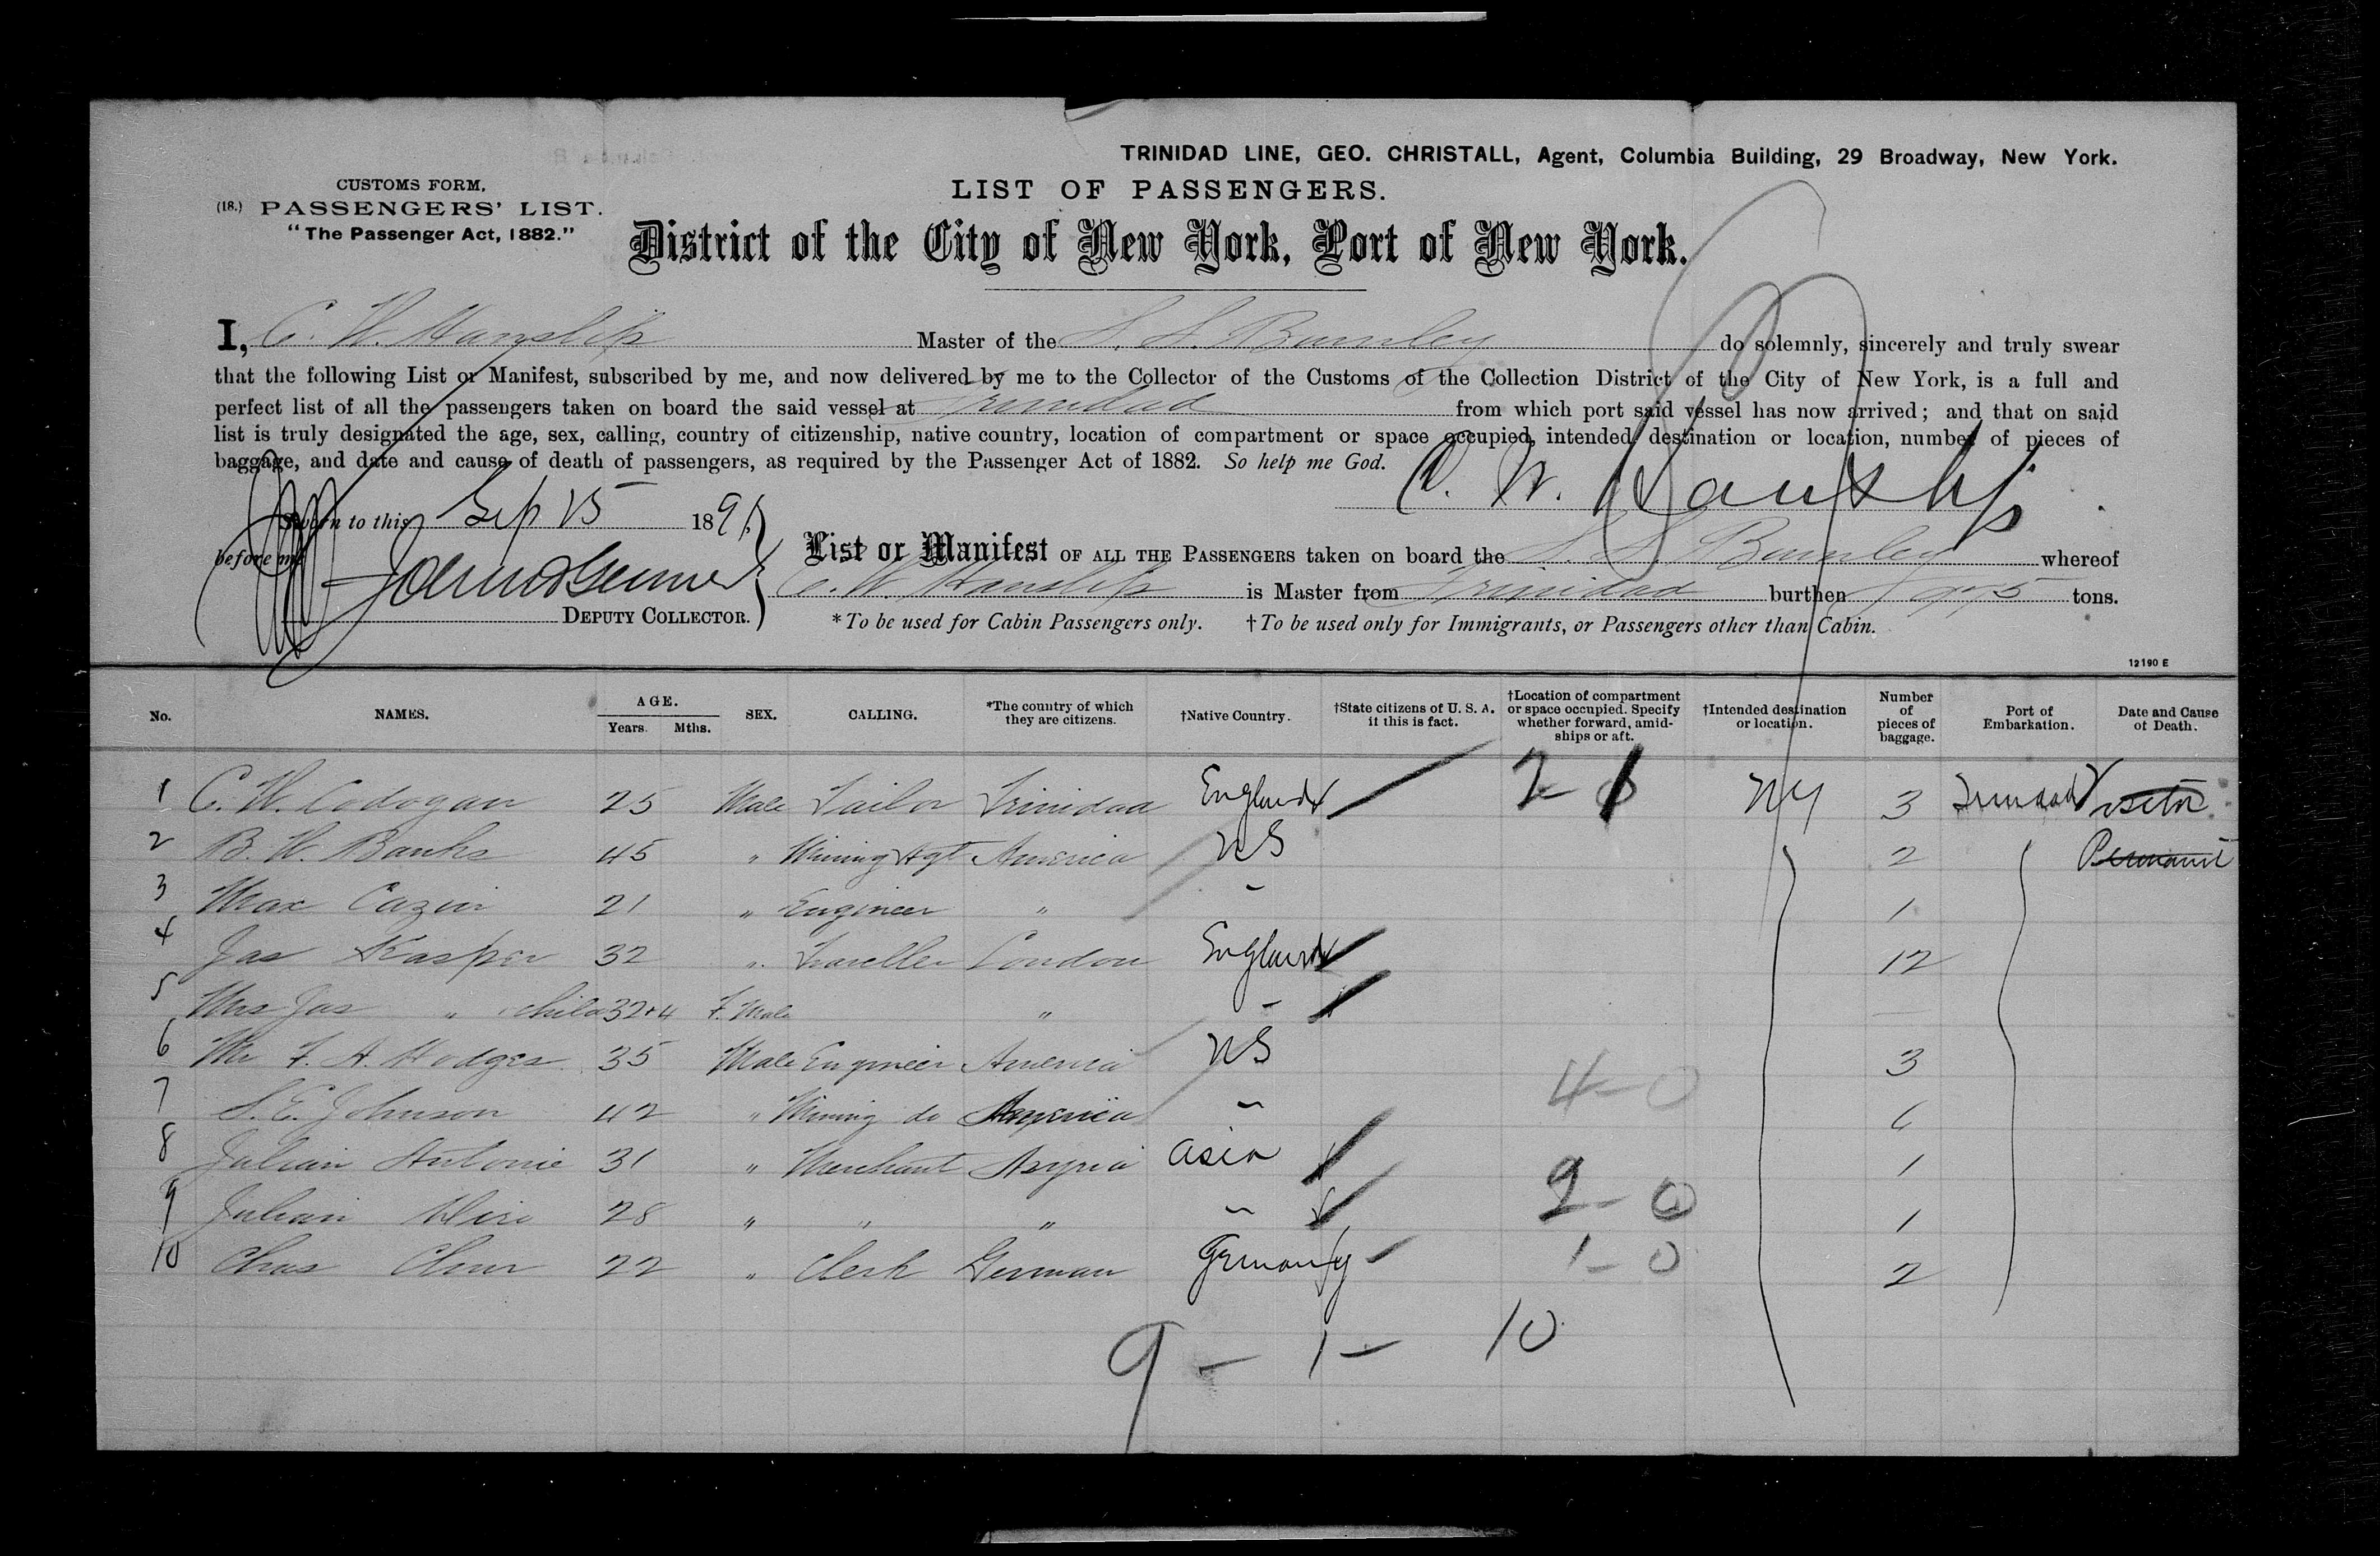 TRINIDAD LINE, GEO. CHRISTALL, Agent, Columbia Building, 29 Broadway, New York.
CUSTOMS FORM.
(18.) PASSENGERS' LIST.
"The Passenger Act, 1882."
LIST OF PASSENGERS.
District of the City of New York, Port of New York.
I, C. W. Hanslip Master of the S. S. Burnley do solemnly, sincerely and truly swear
that the following List or Manifest, subscribed by me, and now delivered by me to the Collector of the Customs of the Collection District of the City of New York, is a full and
perfect list of all the passengers taken on board the said vessel at Trinidad from which port said vessel has now arrived; and that on said
list is truly designated the age, sex, calling, country of citizenship, native country, location of compartment or space occupied, intended destination or location, number of pieces of
baggage, and date and cause of death of passengers, as required by the Passenger Act of 1882. So help me God.
C. W. Hanslip
Sworn to this Sep 15 189
before me
DEPUTY COLLECTOR.
List or Manifest OF ALL THE PASSENGERS taken on board the S. S. Burnley whereof
C. W. Hanslip is Master from Trinidad burthen tons.
*To be used for Cabin Passengers only. †To be used only for Immigrants, or Passengers other than Cabin.
12190 E
No. NAMES. AGE. Years. Mths. SEX. CALLING. *The country of which they are citizens. †Native Country. †State citizens of U. S. A. if this is fact. †Location of compartment or space occupied. Specify whether forward, amidships or aft. †Intended destination or location. Number of pieces of baggage. Port of Embarkation. Date and Cause of Death.
1 C. W. Codogan 25 Male Tailor Trinidad England 2 NY 3 Trinidad Visitor
2 B. W. Banks 45 " Mining Agt America US 2 Permanent
3 Max Cazin 21 " Engineer " - 1
4 Jas Kasper 32 " Traveller London England 12
5 Mrs Jas " child 32+4 F. Male " -
6 Mr F. A. Hodges 35 Male Engineer America US 3
7 S. E. Johnson 42 " Mining do America - 4-0 6
8 Julian Antonie 31 " Merchant Asyria Asia 1
9 Julian 28 " " " - 2-0 1
10 Chas 22 " Clerk German Germany 1-0 2
9 - 1 - 10